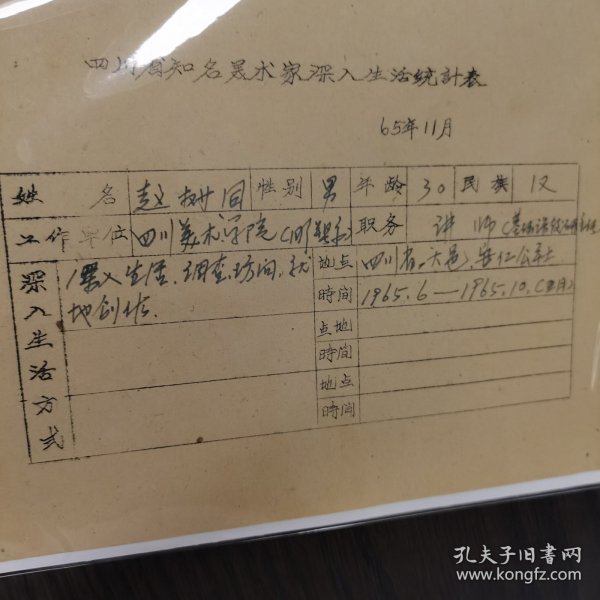 四川省知名美术家深入生活統計表
65年11月
姓 名 赵树同 性别 男 年龄 30 民族 汉
工作单位 四川美术学院 职务 讲师
深入生活方式 深入生活、调查访问、就地创作. 地点 四川省、大邑、安仁公社
时间 1965.6—1965.10.
点地
时间
地点
时间
孔夫子旧书网
www.kongfz.com